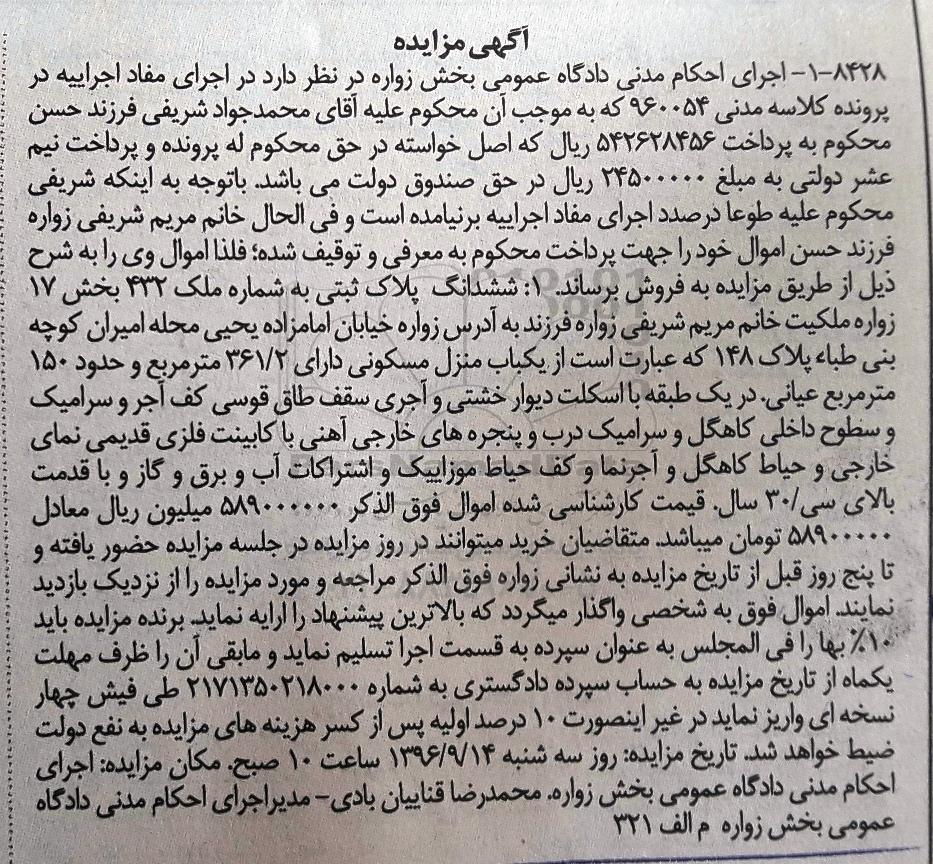 آگهی مزایده
۸۴۲۸-۱- اجرای احکام مدنی دادگاه عمومی بخش زواره در نظر دارد در اجرای مفاد اجراییه در
پرونده کلاسه مدنی ۹۶۰۰۵۴ که به موجب آن محکوم علیه آقای محمدجواد شریفی فرزند حسن
محکوم به پرداخت ۵۴۲۶۲۸۴۵۶ ریال که اصل خواسته در حق محکوم له پرونده و پرداخت نیم
عشر دولتی به مبلغ ۲۴۵۰۰۰۰۰ ریال در حق صندوق دولت می باشد. باتوجه به اینکه شریفی
محکوم علیه طوعا درصدد اجرای مفاد اجراییه برنیامده است و فی الحال خانم مریم شریفی زواره
فرزند حسن اموال خود را جهت پرداخت محکوم به معرفی و توقیف شده؛ فلذا اموال وی را به شرح
ذیل از طریق مزایده به فروش برساند. ۱: ششدانگ پلاک ثبتی به شماره ملک ۴۳۲ بخش ۱۷
زواره ملکیت خانم مریم شریفی زواره فرزند به آدرس زواره خیابان امامزاده یحیی محله امیران کوچه
بنی طباء پلاک ۱۴۸ که عبارت است از یکباب منزل مسکونی دارای ۳۶۱/۲ مترمربع و حدود ۱۵۰
مترمربع عیانی. در یک طبقه با اسکلت دیوار خشتی و آجری سقف طاق قوسی کف آجر و سرامیک
و سطوح داخلی کاهگل و سرامیک درب و پنجره های خارجی آهنی با کابینت فلزی قدیمی نمای
خارجی و حیاط کاهگل و آجرنما و کف حیاط موزاییک و اشتراکات آب و برق و گاز و با قدمت
بالای سی/۳۰ سال. قیمت کارشناسی شده اموال فوق الذکر ۵۸۹۰۰۰۰۰۰ میلیون ریال معادل
۵۸۹۰۰۰۰۰ تومان میباشد. متقاضیان خرید میتوانند در روز مزایده در جلسه مزایده حضور یافته و
تا پنج روز قبل از تاریخ مزایده به نشانی زواره فوق الذکر مراجعه و مورد مزایده را از نزدیک بازدید
نمایند. اموال فوق به شخصی واگذار میگردد که بالاترین پیشنهاد را ارایه نماید. برنده مزایده باید
۱۰٪ بها را فی المجلس به عنوان سپرده به قسمت اجرا تسلیم نماید و مابقی آن را ظرف مهلت
یکماه از تاریخ مزایده به حساب سپرده دادگستری به شماره ۲۱۷۱۳۵۰۲۱۸۰۰۰ طی فیش چهار
نسخه ای واریز نماید در غیر اینصورت ۱۰ درصد اولیه پس از کسر هزینه های مزایده به نفع دولت
ضبط خواهد شد. تاریخ مزایده: روز سه شنبه ۱۳۹۶/۹/۱۴ ساعت ۱۰ صبح. مکان مزایده: اجرای
احکام مدنی دادگاه عمومی بخش زواره. محمدرضا قناییان بادی- مدیراجرای احکام مدنی دادگاه
عمومی بخش زواره م الف ۳۲۱